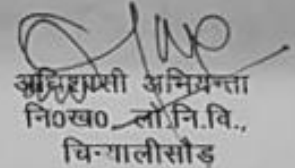 अधिशासी अभियन्ता
नि०ख०, लो.नि.वि.,
चिन्यालीसौड़